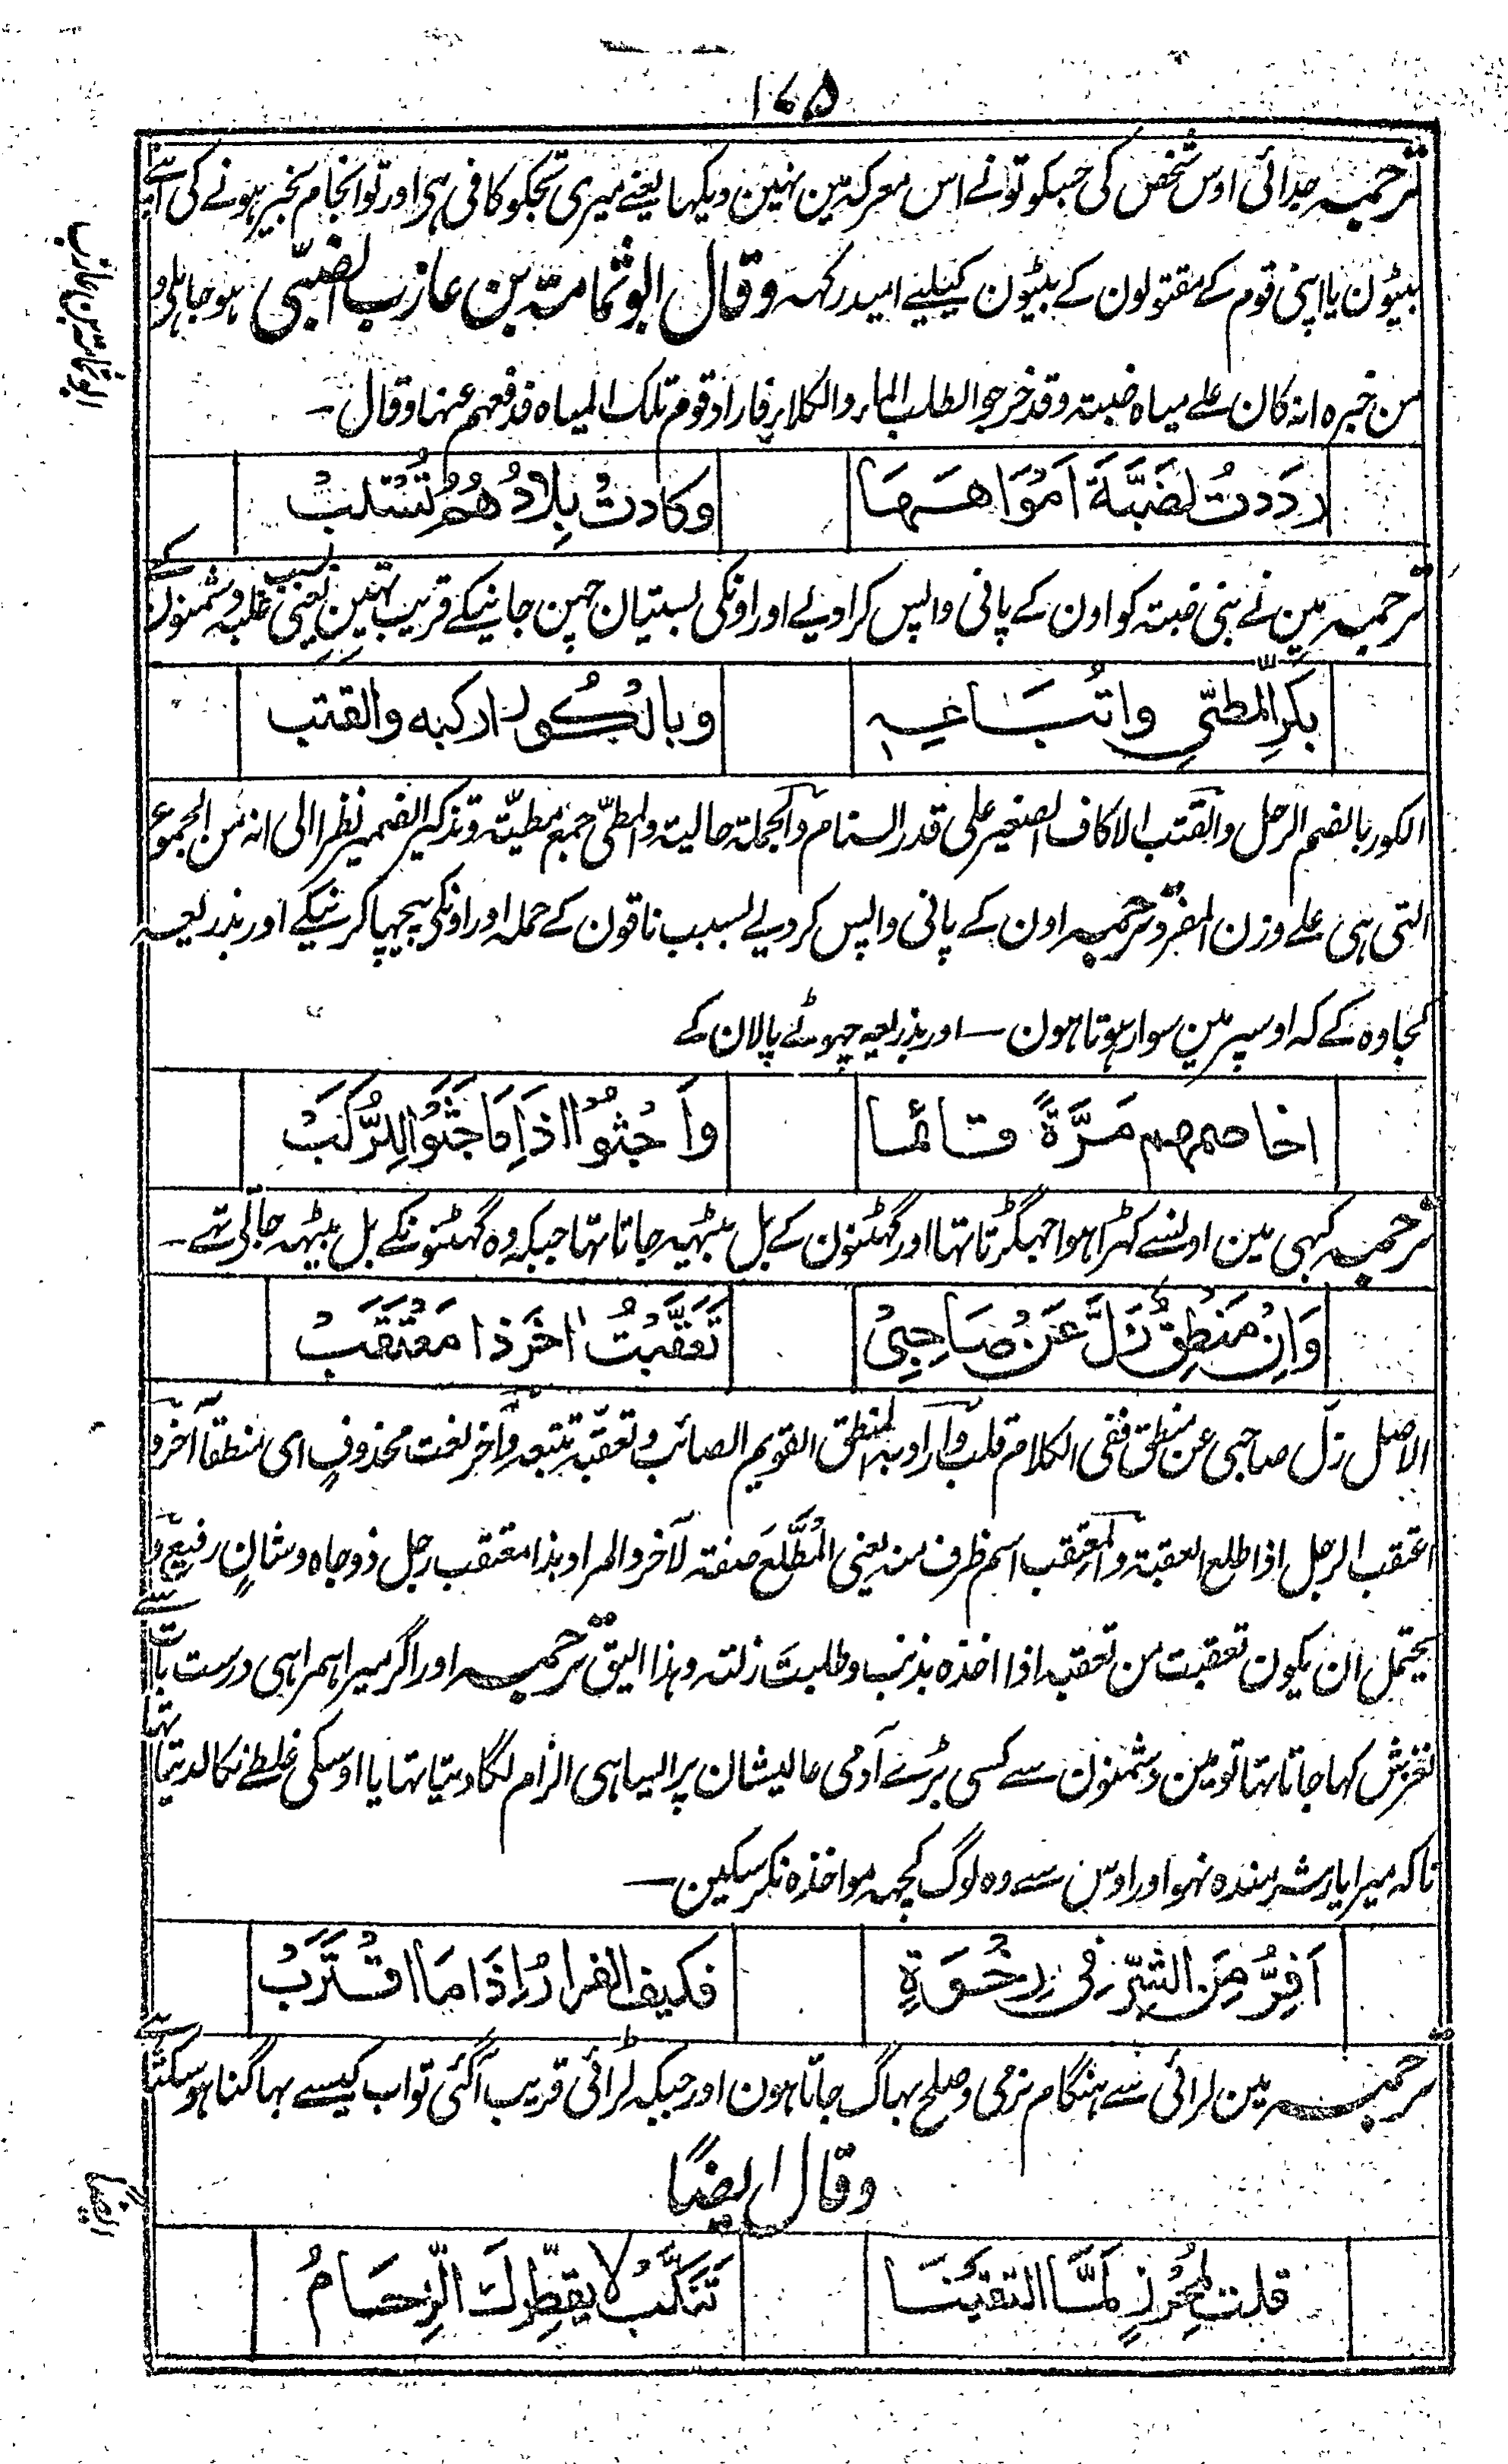 ۱۷۵
ترجمہ جدائی اوس شخص کی جسکو تونے اس معرکہ مین نہین دیکہا یعنے میری تجکو کافی ہی اور تو انجام بخیر ہونے کی اپنے
بیٹیون یا اپنی قوم کے مقتولون کے بیٹیون کیلیے امید رکہہ وقال ابو ثمامۃ بن عازب الضبّی ہو جاہلی و
من خبرہ انہ کان علے میاہ ضبتہ وقد خرجوا لطلب الماء والکلاء فاراد قوم تلک المیاہ فدفعہم عنہا وقال ۔
رَدَدتُ لضَبَّةَ اَمْوَاهَهَا وكادتْ بِلادُهُمُ تُسْتلبْ
ترجمہ مین نے بنی ضبتہ کو اون کے پانی واپس کرادیے اور اونکی بستیان چہن جانیکے قریب تہین یعنی بسبب غلبہ دشمنون کے
بكرِّ المطيِّ واتْبَاعِهِ وبالكُورِ اركبه والقتب
الکور بالضم الرحل والقتب الاکاف الصغیر علی قدر السنام والجملۃ حالیتہ والمطیّ جمع مطیّتہ وتذکیر الضمیر نظرا الی انہ من الجموع
التی ہی علے وزن المفرد ترجمہ اون کے پانی واپس کردیے بسبب ناقون کے حملہ اور اونکی پیچہا کرنیکے اور بذریعہ
کجاوہ کے کہ اوسپر مین سوار ہوتا ہون ۔ اور بذریعہ چہوٹے پالان کے
اخاصمهم مَرَّةً قائما وَاَجْثُوْا اذَا مَا جَثَوْا لِلرُّكَبْ
ترجمہ کبہی مین اونسے کہڑا ہوا جہگڑتا تہا اور گہٹنون کے بل بیٹہہ جاتا تہا جبکہ وہ گہٹنونکے بل بیٹہہ جاتے تہے ۔
وَاِنْ مَنْطِقٌ زَلَّ عَنْ صَاحِبِيْ تَعَقَّبْتُ اٰخَرَ ذا مَعْتَقَبْ
الاصل زل صاحبی عن منطق ففی الکلام قلب واراد بہ المنطق القویم الصائب وتعقبہ تتبعہ وآخر نعت محذوفٍ ای منطقاً آخر و
اعتقب الرجل اذا طلع العقبۃ والمعتقب اسم ظرف منہ یعنی المُطَّلَع صفتہ لآخر والمراد بذا معتقب رجل ذو جاہ وشانٍ رفیع و
یحتمل ان یکون تعقبت من تعقبہ اذا اخذہ بذنب وطلبتَ زلتہ وہذا الیق ترجمہ اور اگر میرا ہمراہی درست بات سے
لغزش کہا جاتا تہا تو مین دشمنون سے کسی بڑے آدمی عالیشان پر ایسا ہی الزام لگا دیتا تہا یا اوسکی غلطے نکالدیتا تہا
تاکہ میرا یار شرمندہ نہو اور اوس سے وہ لوگ کچہہ مواخذہ نکرسکین ۔
اَفِرُّ مِنَ الشَّرِّ فى رِخْوَةٍ فكيف الفرارُ اِذَا مَا اقْتَرَبْ
ترجمہ مین لرائی سے ہنگام نرمی وصلح بہاگ جاتا ہون اور جبکہ لڑائی قریب آگئی تو اب کیسے بہاگنا ہو سکتا ہے
وقال ایضًا
قلت لمُحْرِزٍ لَمَّا التقيْنَا تَنَكَّبْ لا يقطِّرك الزِّحَامُ
ابو ثمامۃ بن عازب
ایضًا